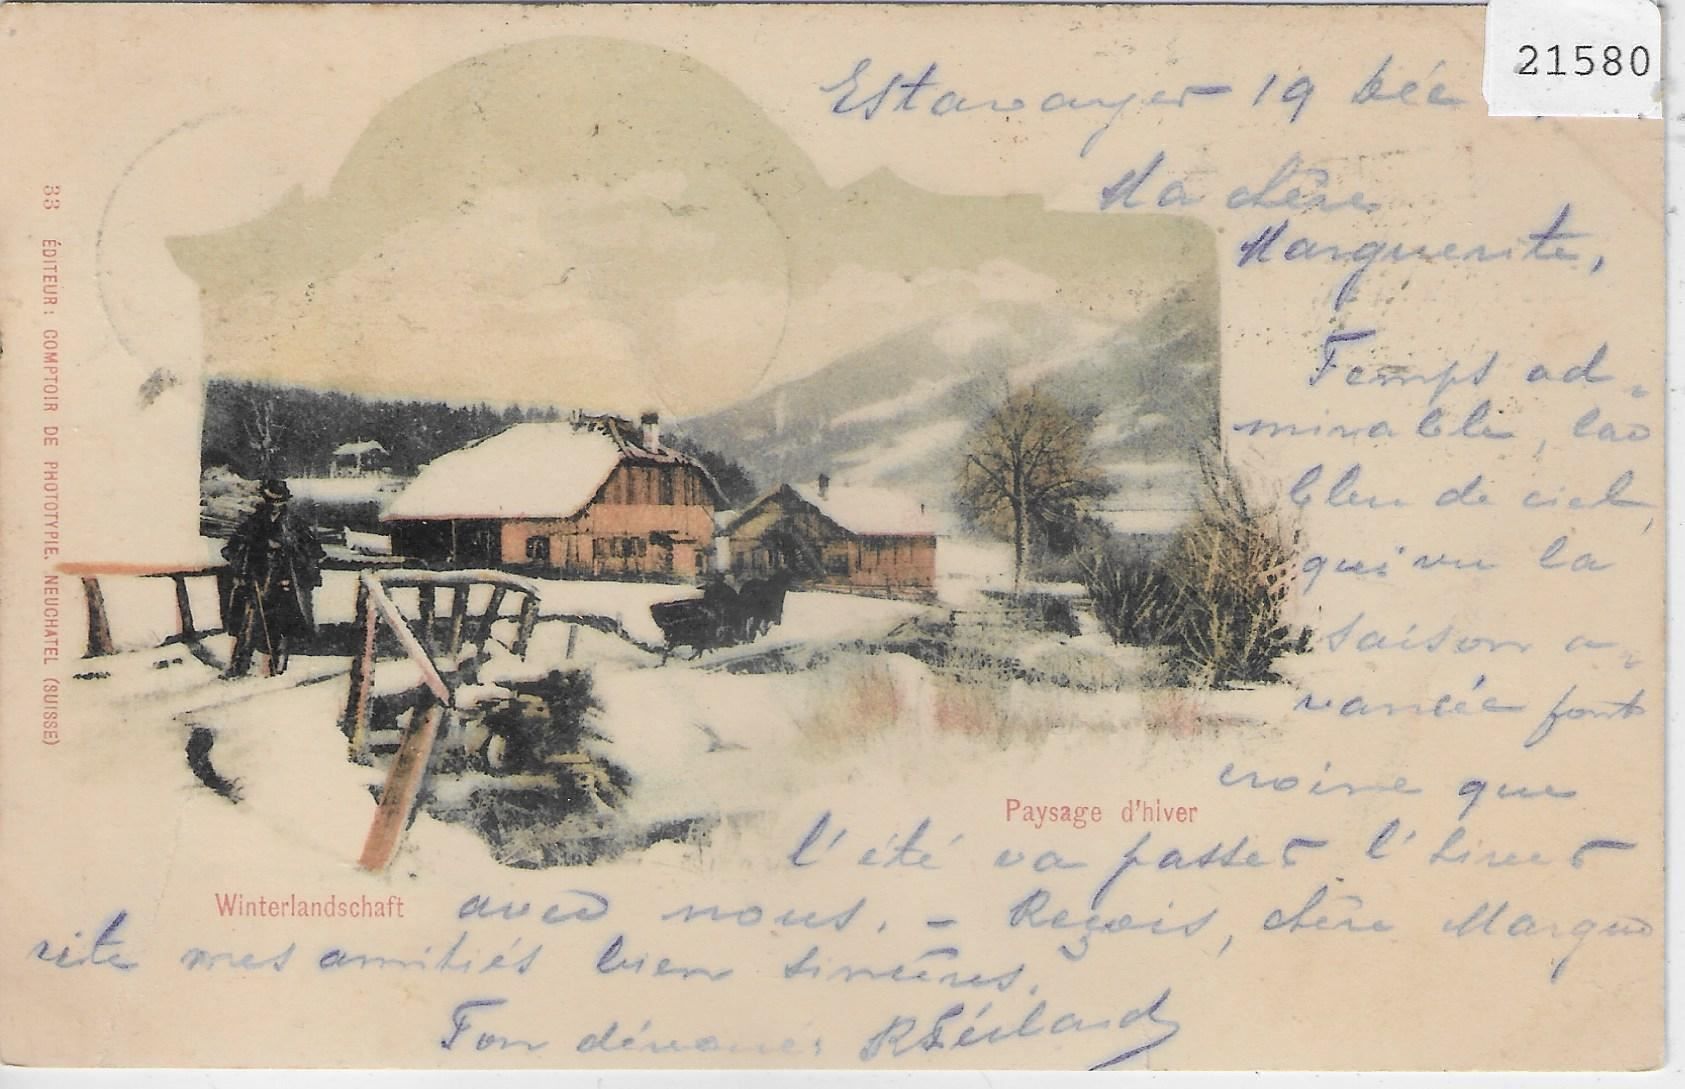 21580
Estavayer 19 Déc
Ma chère
Marguerite,
Temps ad-
mirable, lac
bleu de ciel,
qui vu la
saison a-
vancée font
croire que
Paysage d'hiver
l'été va passer l'hiver
Winterlandschaft
avec nous. - Reçois, chère Margue
rite mes amitiés bien sincères.
Ton dévoué:
33 ÉDITEUR: COMPTOIR DE PHOTOTYPIE, NEUCHATEL (SUISSE)